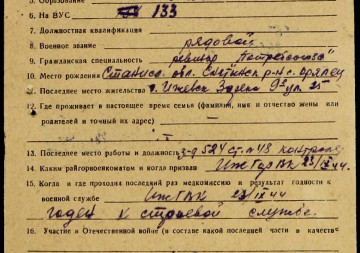 5. Образование
6. На ВУС 133
7. Должностная квалификация
8. Военное звание рядовой
9. Гражданская специальность
10. Место рождения Станисл. обл. р-н с.
11. Последнее место жительства г. Ижевск 9 ул. 25
12. Где проживает в настоящее время семья (фамилия, имя и отчество жены или
родителей и точный их адрес)
13. Последнее место работы и должность з-д 524 ст. №48 контролер
14. Каким райгорвоенкоматом и когда призван ИжГорВК 23/IX 44
15. Когда и где проходил последний раз медкомиссию и результат годности к
военной службе 23/IX 44
годен к строевой службе.
16. Участие в Отечественной войне (в составе какой последней части и в качестве